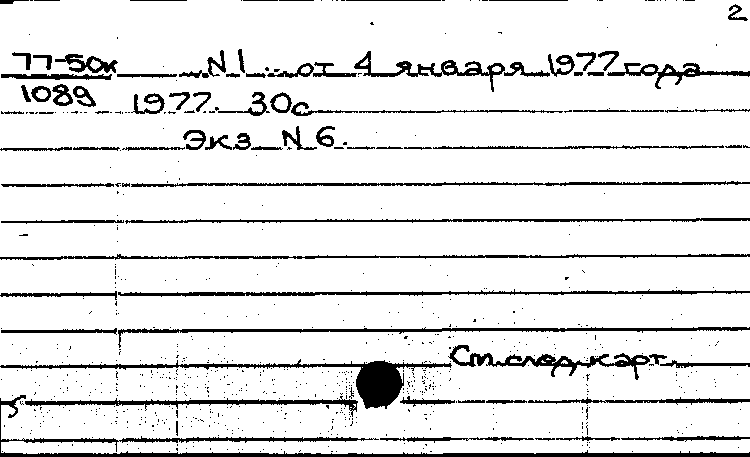 2
77-50к N 1 от 4 января 1977 года
1089 1977. 30с
Экз N 6.
См.след.карт.
5